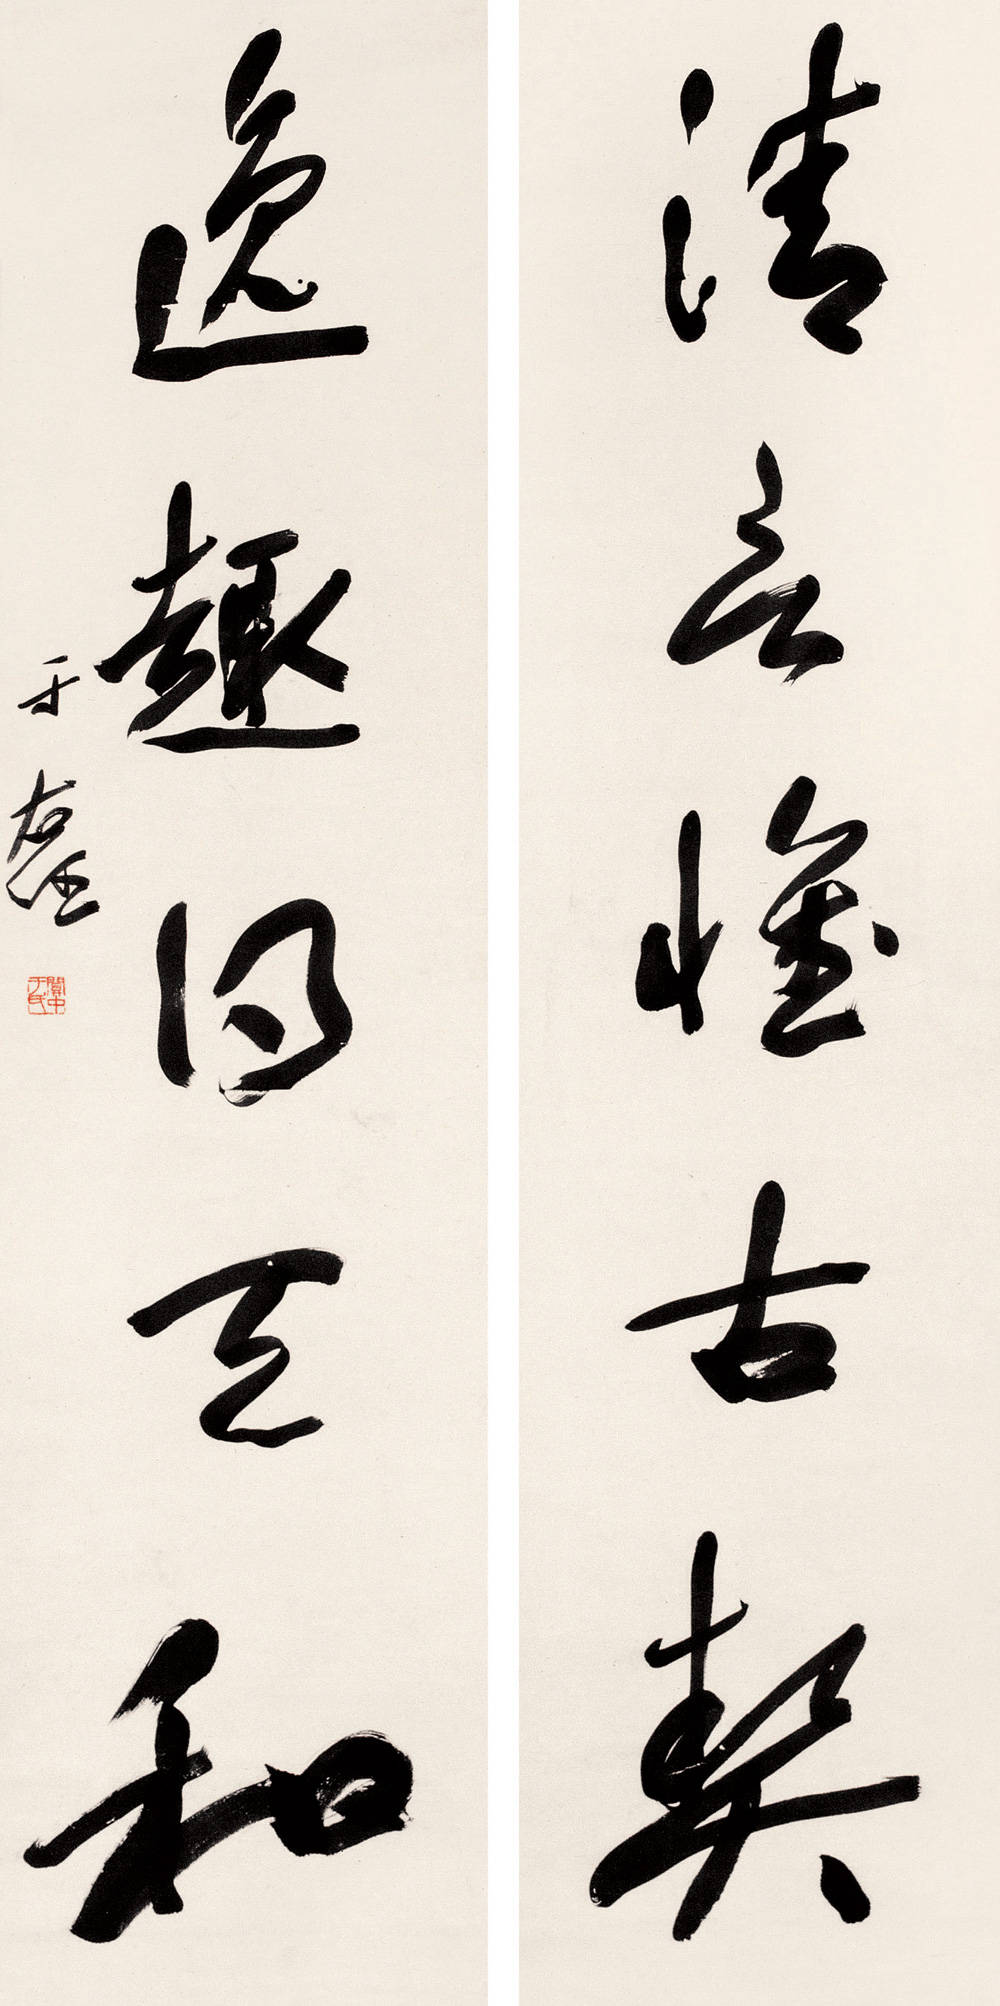 清言古契
逸趣得天和
于右任
關中于氏